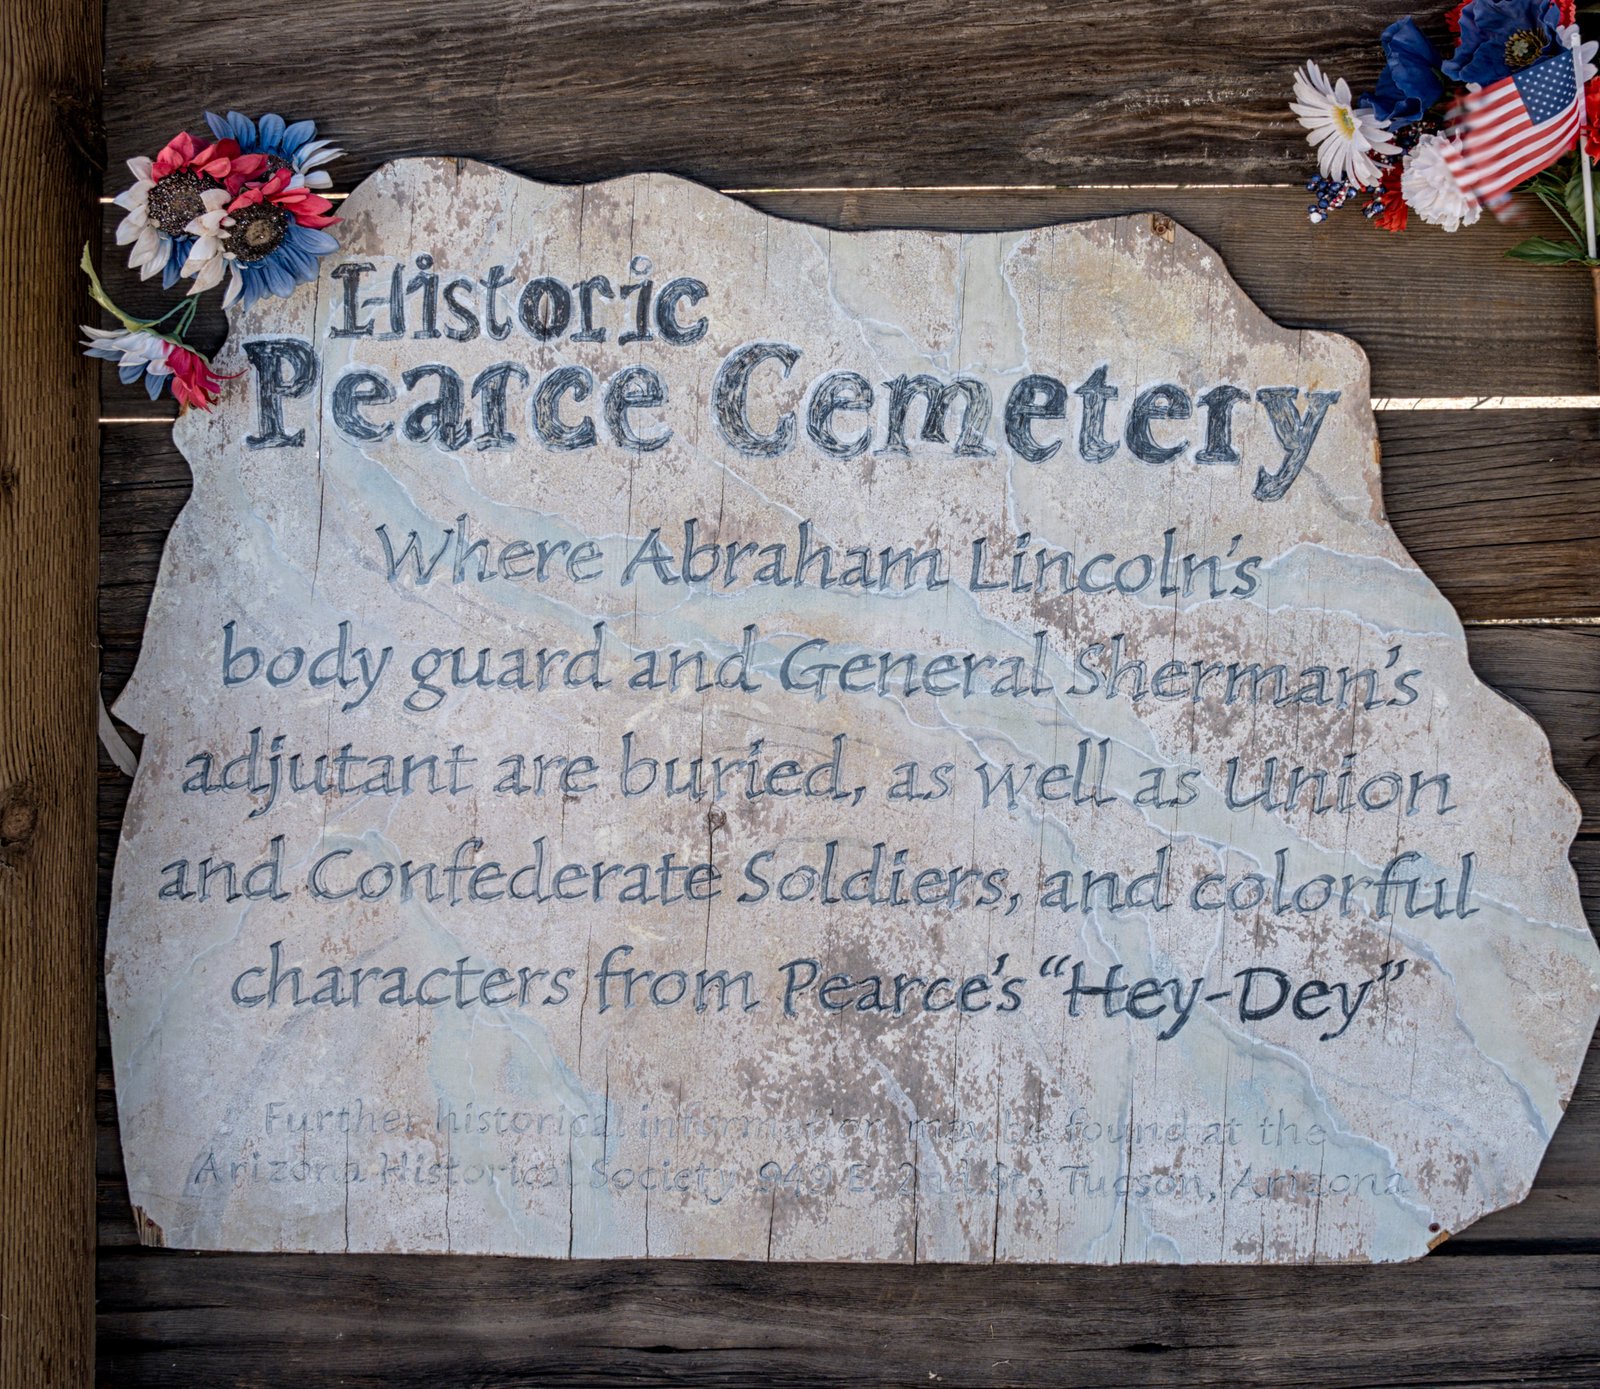 Historic
Pearce Cemetery
Where Abraham Lincoln's
body guard and General Sherman's
adjutant are buried, as well as Union
and Confederate Soldiers, and colorful
characters from Pearce's “Hey-Dey”
Further historical information may be found at the
Arizona Historical Society 949 E. 2nd St., Tucson, Arizona